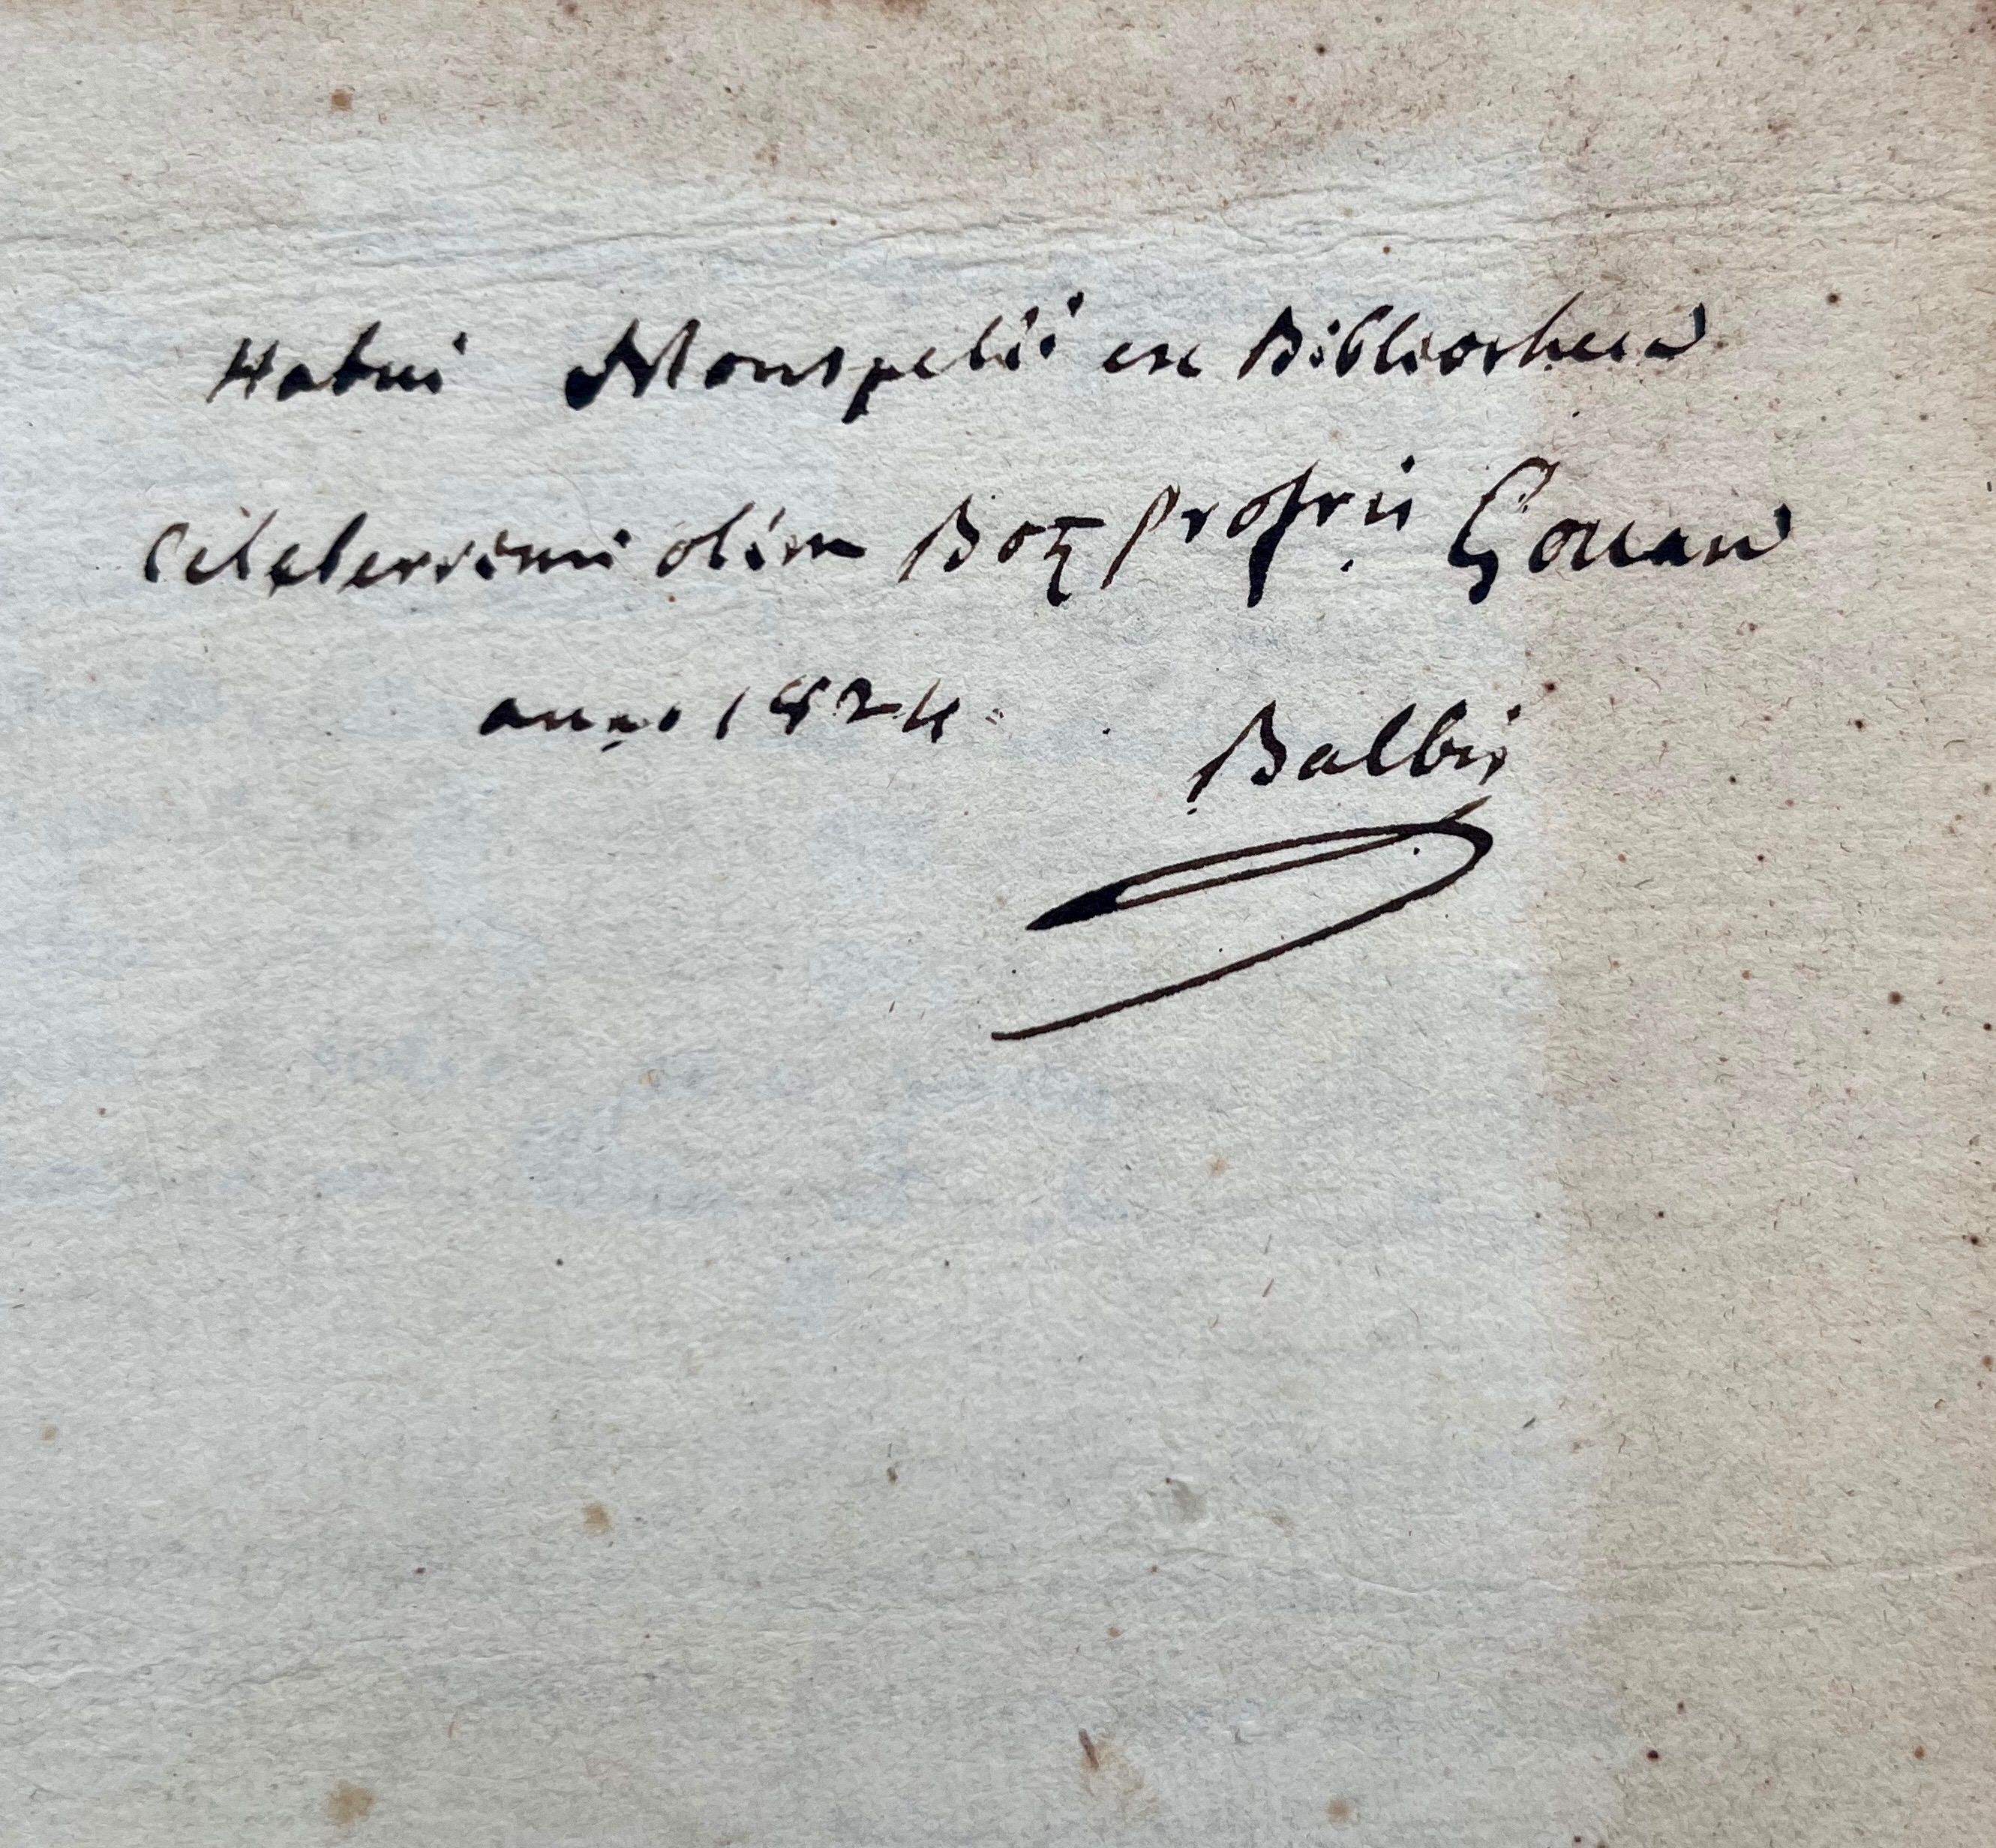 Habui Monspelii ex Bibliotheca
Celeberrimi olim Bot. Profris Gouan
anno 1824
Balbis